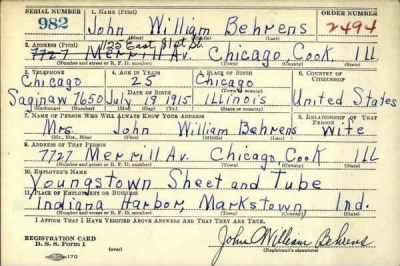 SERIAL NUMBER 1. NAME (Print) ORDER NUMBER
982 John William Behrens 2494
1125 East 81st St.
2. ADDRESS (Print)
7727 Merrill Av. Chicago Cook Ill
(Number and street or R. F. D. number) (Town) (County) (State)
3. TELEPHONE 4. AGE IN YEARS 5. PLACE OF BIRTH 6. COUNTRY OF CITIZENSHIP
Chicago 25 Chicago
Saginaw 7650 July 19 1915 Illinois United States
7. NAME OF PERSON WHO WILL ALWAYS KNOW YOUR ADDRESS 8. RELATIONSHIP OF THAT PERSON
Mrs. John William Behrens Wife
(Mr., Mrs., Miss) (First) (Middle) (Last)
9. ADDRESS OF THAT PERSON
7727 Merrill Av. Chicago, Cook Ill
(Number and street or R. F. D. number) (Town) (County) (State)
10. EMPLOYER'S NAME
Youngstown Sheet and Tube
11. PLACE OF EMPLOYMENT OR BUSINESS
Indiana Harbor, Markstown, Ind.
(Number and street or R. F. D. number) (Town) (County) (State)
I AFFIRM THAT I HAVE VERIFIED ABOVE ANSWERS AND THAT THEY ARE TRUE.
REGISTRATION CARD
D. S. S. Form 1 (over) John William Behrens